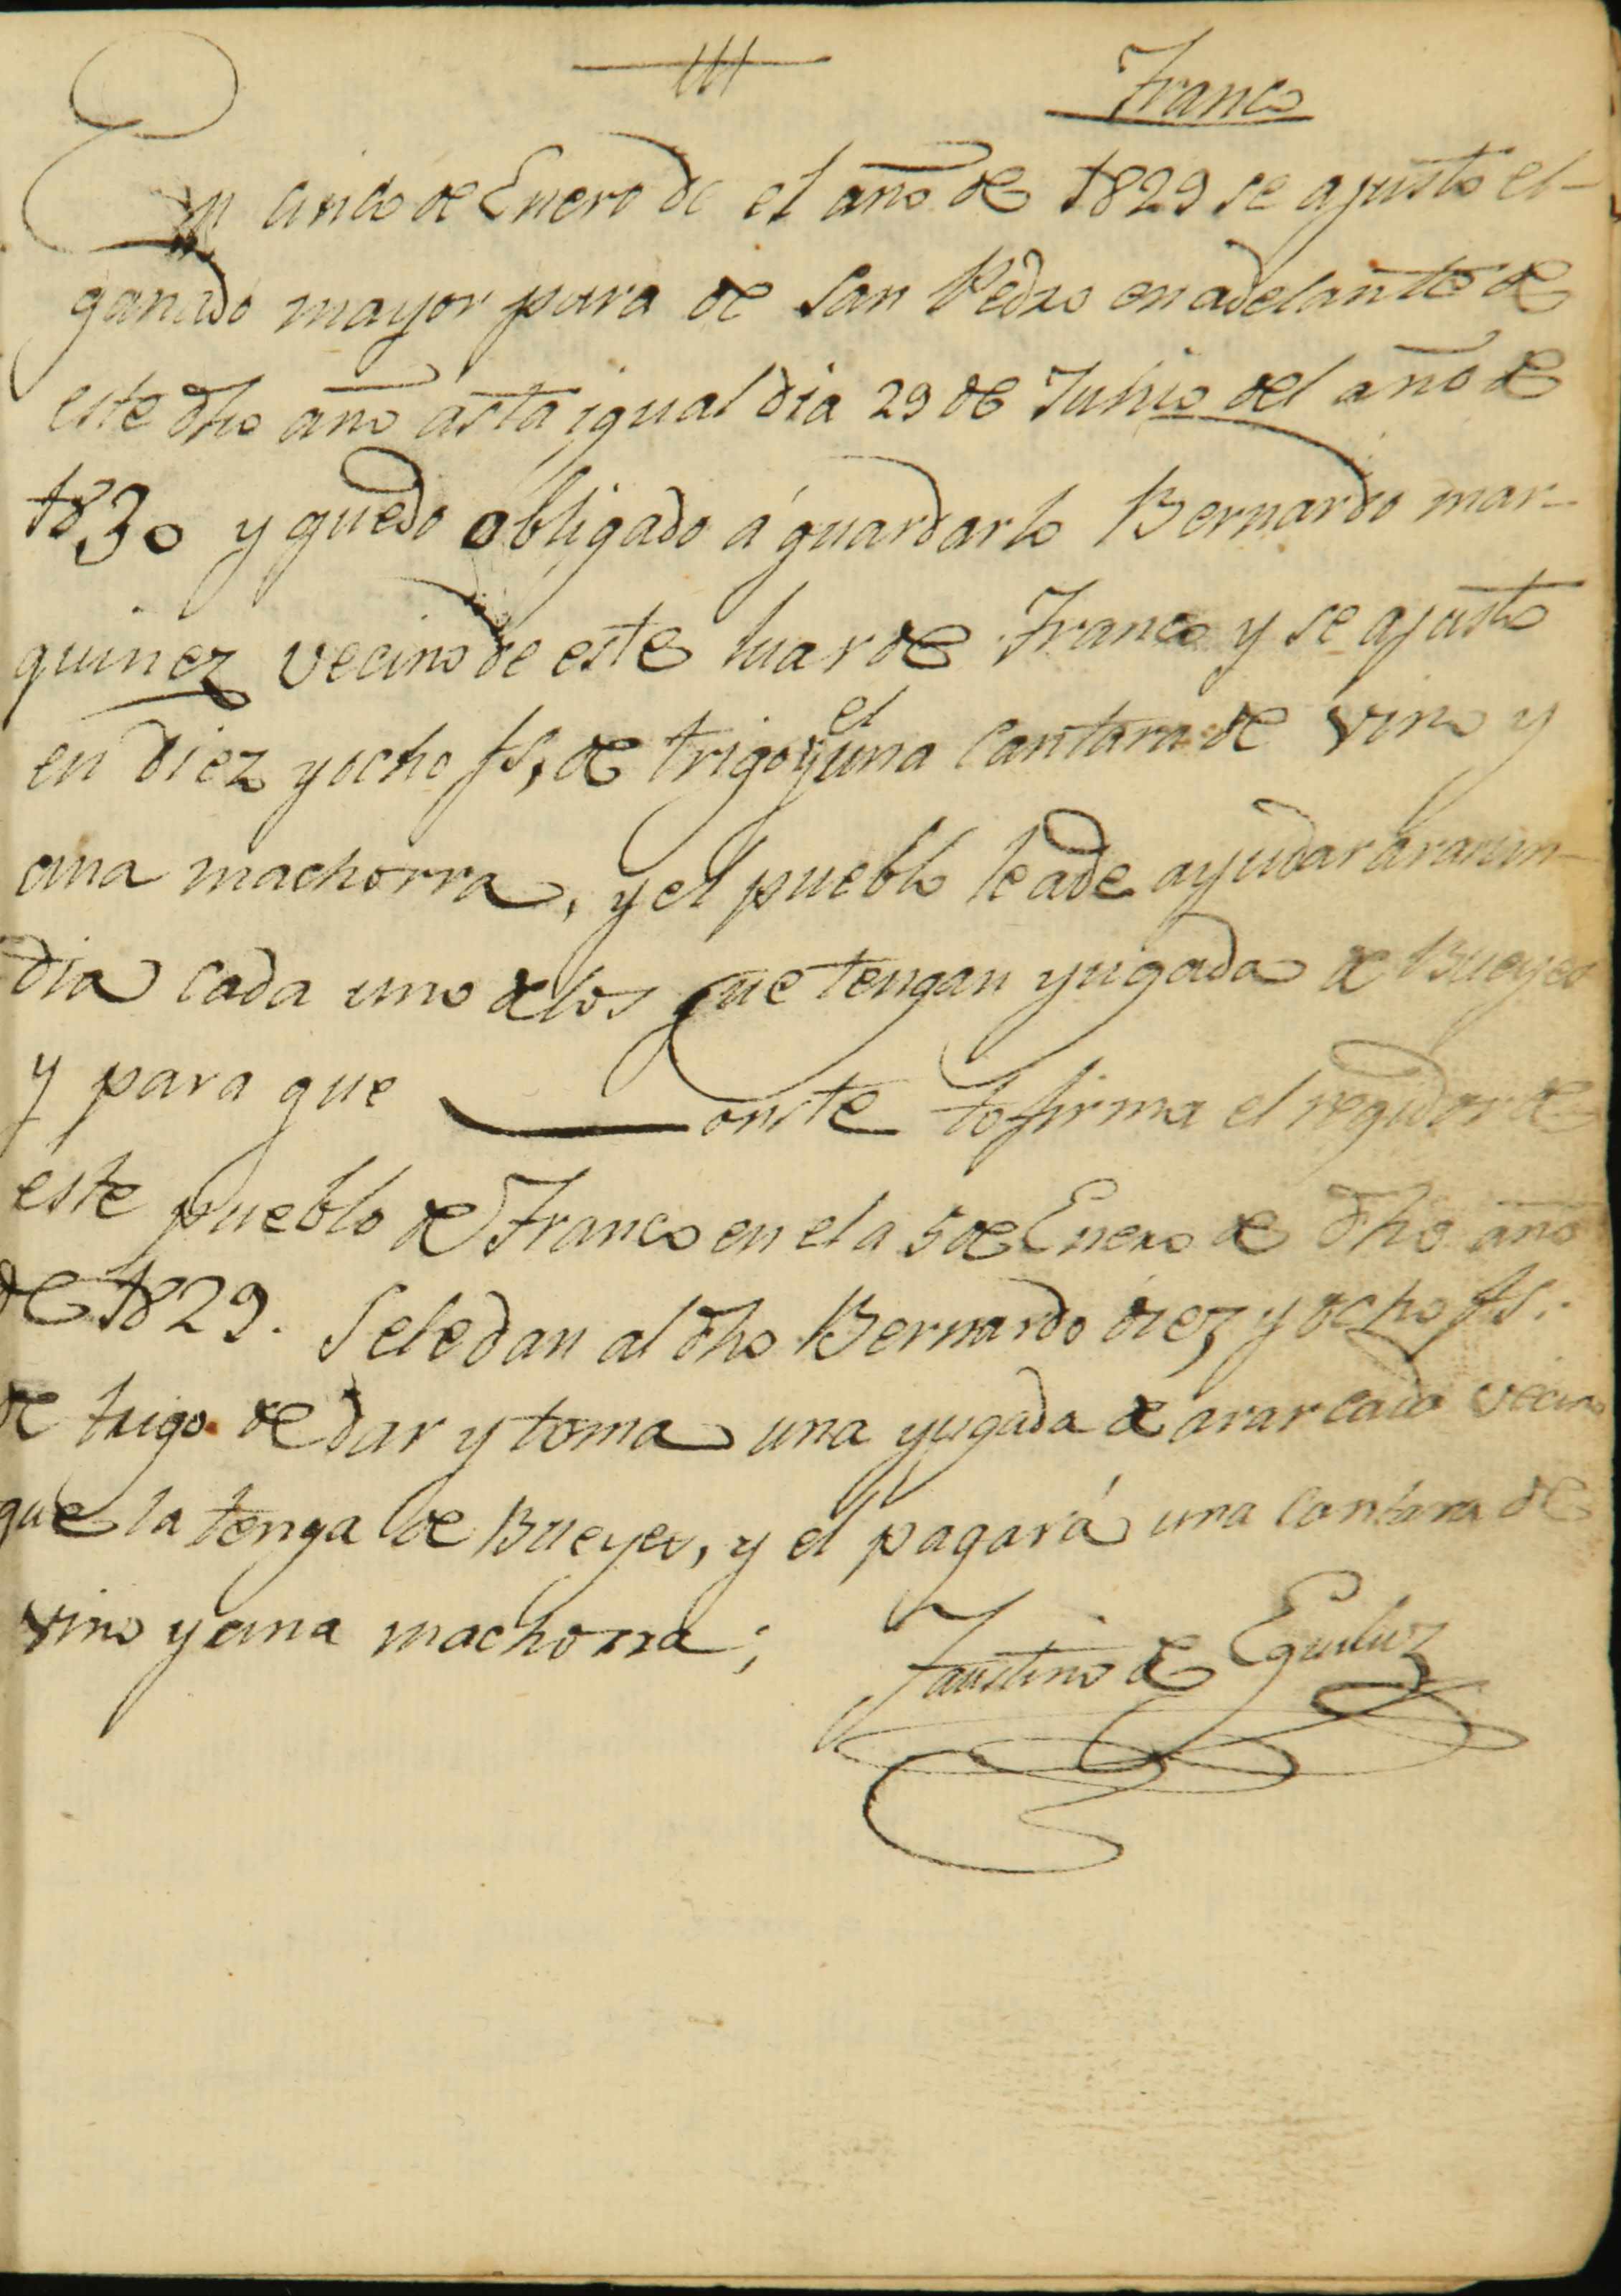 Franco
En cinco de Enero de el año de 1829 se ajusto el
ganado mayor para de San Pedro en adelante de
este dho año asta igual dia 29 de Junio del año de
1830 y quedo obligado á guardarlo Bernardo mar-
quinez vecino de este luar de Franco y se ajusto
en diez y ocho fs, de trigo y el una cantara de vino y
una machorra, y el pueblo le a de ayudar ararun-
dia cada uno de los que tengan yugada de Bueyes
y para que Conste lo firma el regidor de
este pueblo de Franco en el a 5 de Enero de dho año
de 1829. Se le dan al dho Bernardo diez y ocho fs.
de trigo de dar y toma una yugada de arar cada vecino
que la tenga de Bueyes, y el pagará una cantara de
vino y una machorra;
Faustino de Eguiluz